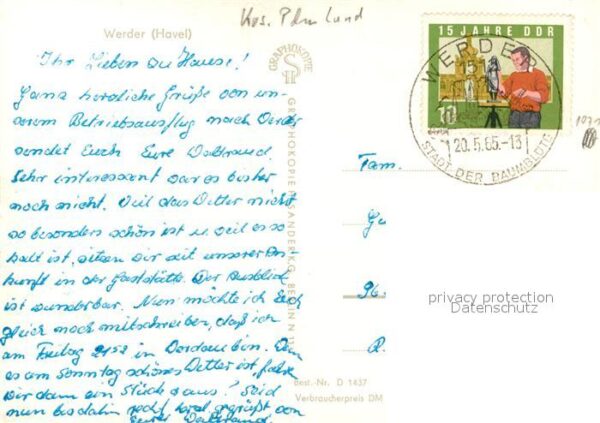 Kos. Pdm Land
Werder (Havel)
15 JAHRE DDR
10
WERDER
20.5.65.-13
STADT DER BAUMBLÜTE
GRAPHOKOPIE
GRAPHOKOPIE H. SANDER KG. BERLIN N
Ihr Lieben zu Hause!
Ganz herzliche Grüße von un-
serem Betriebsausflug nach Werder
sendet Euch Eure Waltraud.
Sehr interessant war es bisher
noch nicht. Weil das Wetter nicht
so besonders schön ist u. weil es so
kalt ist, sitzen wir seit unserer An-
kunft in der Gaststätte. Der Ausblick
ist wunderbar. Nun möchte ich Euch
gleich noch mitschreiben, daß ich
am Freitag 21⁵² in bin. Wenn
es am Sonntag schönes Wetter ist, fahren
wir dann ein Stück raus! Seid
nun bis dahin recht herzl. gegrüßt von
Eurer Waltraud
Fam.
privacy protection
Datenschutz
Best.-Nr. D 1437
Verbraucherpreis DM